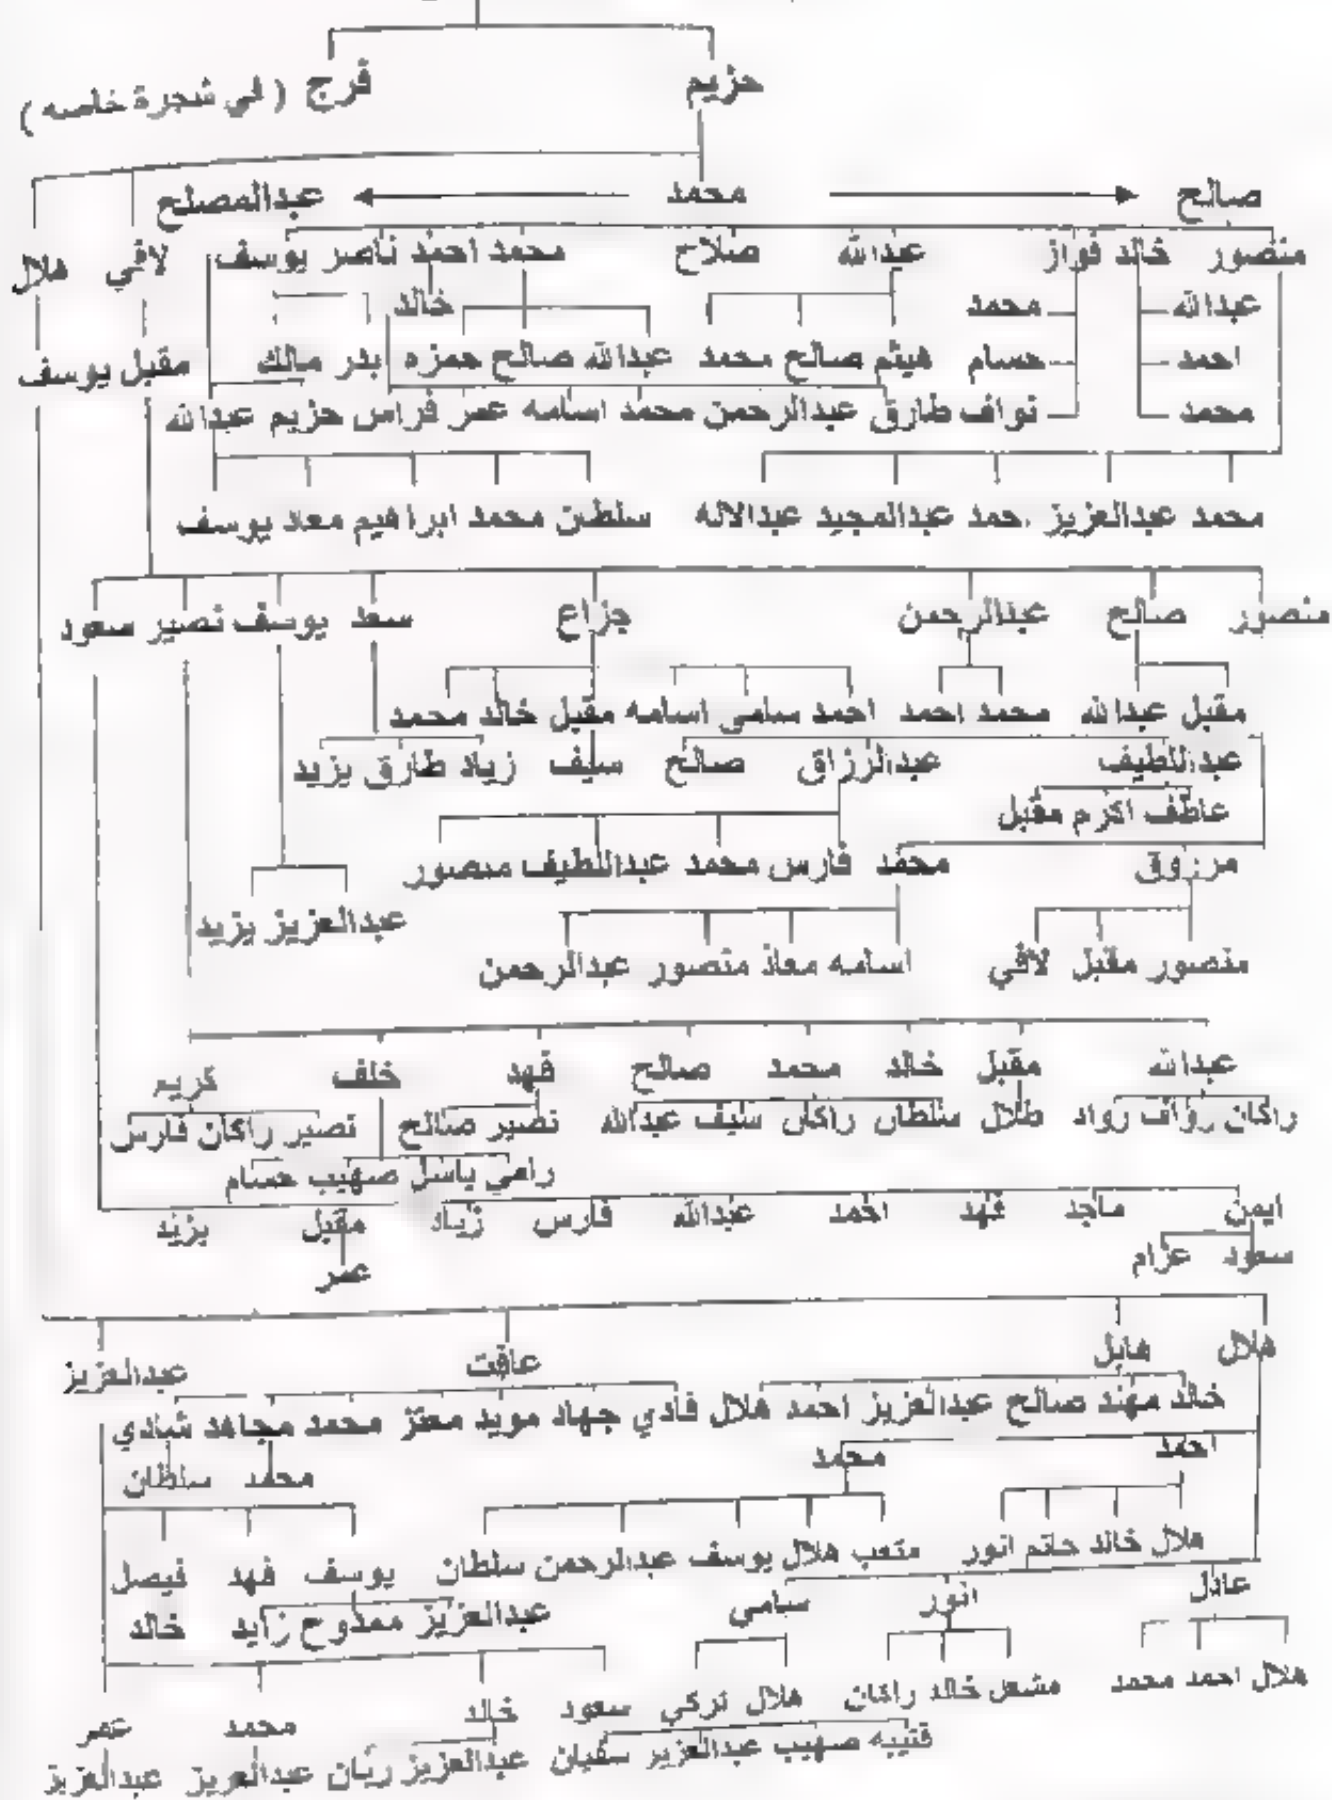 حزيم فرج ( في شجرة خاصه )
صالح محمد عبدالمصلح
منصور خالد فواز عبدالله صلاح محمد احمد ناصر يوسف لافي هلال
عبدالله محمد خالد
احمد حسام هيثم صالح محمد عبدالله صالح حمزه بدر مالك مقبل يوسف
محمد نواف طارق عبدالرحمن محمد اسامه عمر فراس حزيم عبدالله
محمد عبدالعزيز حمد عبدالمجيد عبدالاله سلطن محمد ابراهيم معاد يوسف
منصور صالح عبدالرحمن جزاع سعد يوسف نصير سعود
مقبل عبدالله محمد احمد احمد سامي اسامه مقبل خالد محمد
عبداللطيف عبدالرزاق صالح سيف زياد طارق يزيد
عاطف اكرم مقبل
مرزوق محمد فارس محمد عبداللطيف منصور
عبدالعزيز يزيد
منصور مقبل لافي اسامه معاذ منصور عبدالرحمن
عبدالله مقبل خالد محمد صالح فهد خلف كريم
راكان رؤاف رواد طلال سلطان راكان سيف عبدالله نصير صالح نصير راكان فارس
رامي ياسل صهيب حسام
ايمن ماجد فهد احمد عبدالله فارس زياد مقبل يزيد
سعود عزام عمر
هلال هايل عافت عبدالعزيز
خالد مهند صالح عبدالعزيز احمد هلال فادي جهاد مويد معتز محمد مجاهد شادي
احمد محمد محمد سلطان
هلال خالد حاتم انور متعب هلال يوسف عبدالرحمن سلطان يوسف فهد فيصل
عادل انور سامي عبدالعزيز ممدوح زايد خالد
هلال احمد محمد مشعل خالد راكان هلال تركي سعود خالد محمد عمر
قتيبه صهيب عبدالعزير سفيان عبدالعزيز ريان عبدالعريز عبدالعزيز